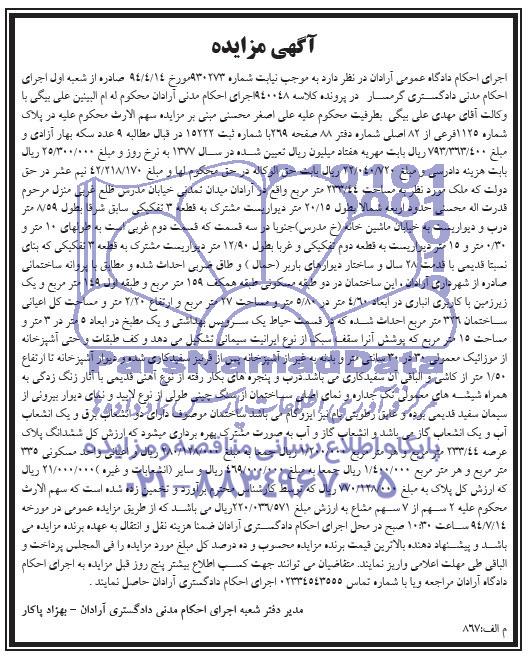 آگهی مزایده
اجرای احکام دادگاه عمومی آرادان در نظر دارد به موجب نیابت شماره ۹۳۰۲۷۳مورخ ۹۴/۴/۱۴ صادره از شعبه اول اجرای
احکام مدنی دادگستری گرمسار در پرونده کلاسه ۹۴۰۰۴۸اجرای احکام مدنی آرادان محکوم له ام البنین علی بیگی با
وکالت آقای مهدی علی بیگی بطرفیت محکوم علیه علی اصغر محسنی مبنی بر مزایده سهم الارث محکوم علیه در پلاک
شماره ۱۱۲۵فرعی از ۸۲ اصلی شماره دفتر ۸۸ صفحه ۲۶۹با شماره ثبت ۱۵۲۲۲ در قبال مطالبه ۹ عدد سکه بهار آزادی و
۷۹۳/۳۶۳/۴۰۰ ریال بابت مهریه هفتاد میلیون ریال تعیین شده در سال ۱۳۷۷ به نرخ روز و مبلغ ۲۵/۳۰۰/۰۰۰ ریال
بابت هزینه دادرسی و مبلغ ۲۲/۰۴۰/۷۲۰ ریال بابت حق الوکاله در حق محکوم لها و مبلغ ۴۲/۲۱۸/۱۷۰ نیم عشر در حق
دولت که ملک مورد نظر به مساحت ۲۳۳/۴۴ متر مربع واقع در آرادان میدان تمدنی خیابان مدرس ضلع غربی منزل مرحوم
قدرت اله محسنی حدود اربعه شمالا بطول ۲۰/۱۵ متر دیواریست مشترک به قطعه ۳ تفکیکی سابق شرقا بطول ۸/۵۹ متر
درب و دیواریست به خیابان ماشین خانه (خ مدرس)جنوبا در سه قسمت که قسمت دوم غربی است به طولهای ۱۰ متر و
۰/۳۰ متر و ۱۵ متر دیواریست به قطعه دوم تفکیکی و غربا بطول ۱۲/۹۰ متر دیواریست مشترک به قطعه ۳ تفکیکی که بنای
نسبتا قدیمی با قدمت ۲۸ سال و ساختار دیوارهای باربر (حمال ) و طاق ضربی احداث شده و مطابق با پروانه ساختمانی
صادره از شهرداری آرادان ، این ساختمان در دو طبقه مسکونی طبقه همکف ۱۵۹ متر مربع و طبقه اول ۱۴۹ متر مربع و یک
زیرزمین با کاربری انباری در ابعاد ۴/۶۰ متر در ۵/۸۰ متر و مساحت ۲۷ متر مربع و ارتفاع ۲/۲۰ متر و مساحت کل اعیانی
ساختمان ۳۳۶ متر مربع احداث شده که در قسمت حیاط یک سرویس بهداشتی و یک مطبخ در ابعاد ۵ متر در ۳ متر و
مساحت ۱۵ متر مربع که پوشش آنرا سقف سبک از نوع ایرانیت سیمانی تشکیل می دهد و کف طبقات و حتی آشپزخانه
از موزائیک معمولی ۳۰ در ۳۰ سانتی متر و بدنه به غیر از آشپزخانه پس از قرنیز سفیدکاری شده و دیوار آشپزخانه تا ارتفاع
۱/۵۰ متر از کاشی و الباقی آن سفیدکاری می باشد.درب و پنجره های بکار رفته از نوع آهنی قدیمی با آثار زنگ زدگی به
همراه شیشه های معمولی تک جداره و نمای اصلی ساختمان از سنگ چینی طولی از نوع لایبید و نمای دیوار بیرونی از
سیمان سفید قدیمی بوده و عایق رطوبتی بام نیز ایزوگام می باشد.ساختمان موصوف دارای دو انشعاب برق و یک انشعاب
آب و یک انشعاب گاز می باشد و انشعاب گاز و آب به صورت مشترک بهره برداری میشود که ارزش کل ششدانگ پلاک
عرصه ۲۳۳/۴۴ متر مربع و هر متر مربع ۱/۲۰۰/۰۰۰ ریال جمعا به مبلغ ۲۸۰/۱۲۸/۰۰۰ ریال و اعیانی واحد مسکونی ۳۳۵
متر مربع و هر متر مربع ۱/۴۰۰/۰۰۰ ریال جمعا به مبلغ ۴۶۹/۰۰۰/۰۰۰ ریال و سایر (انشعابات و غیره )۲۱/۰۰۰/۰۰۰
که ارزش کل پلاک به مبلغ ۷۷۰/۱۲۸/۰۰۰ریال که توسط کارشناس محترم برآورد و تخمین زده شده است که سهم الارث
محکوم علیه ۲ سهم از ۷ سهم مشاع به ارزش مبلغ ۲۲۰/۰۳۶/۵۷۱ریال می باشد که از طریق مزایده عمومی در مورخه
۹۴/۷/۱۴ ساعت ۱۰:۳۰ صبح در محل اجرای احکام دادگستری آرادان ضمنا هزینه نقل و انتقال به عهده برنده مزایده می
باشد و پیشنهاد دهنده بالاترین قیمت برنده مزایده محسوب و ده درصد کل مبلغ مورد مزایده را فی المجلس پرداخت و
الباقی طی مهلت اعلامی واریز نمایند. متقاضیان می توانند جهت کسب اطلاع بیشتر پنج روز قبل مزایده به اجرای احکام
دادگاه آرادان مراجعه ویا با شماره تماس ۰۲۳۳۴۵۴۳۵۵۵ اجرای احکام دادگستری آرادان حاصل نمایند .
مدیر دفتر شعبه اجرای احکام مدنی دادگستری آرادان - بهزاد پاکار
م الف:۸۶۷
ParsNamadData
پایگاه اطلاع رسانی مناقصه و مزایده
۰۲۱-۸۸۳۴۹۶۷۰-۵